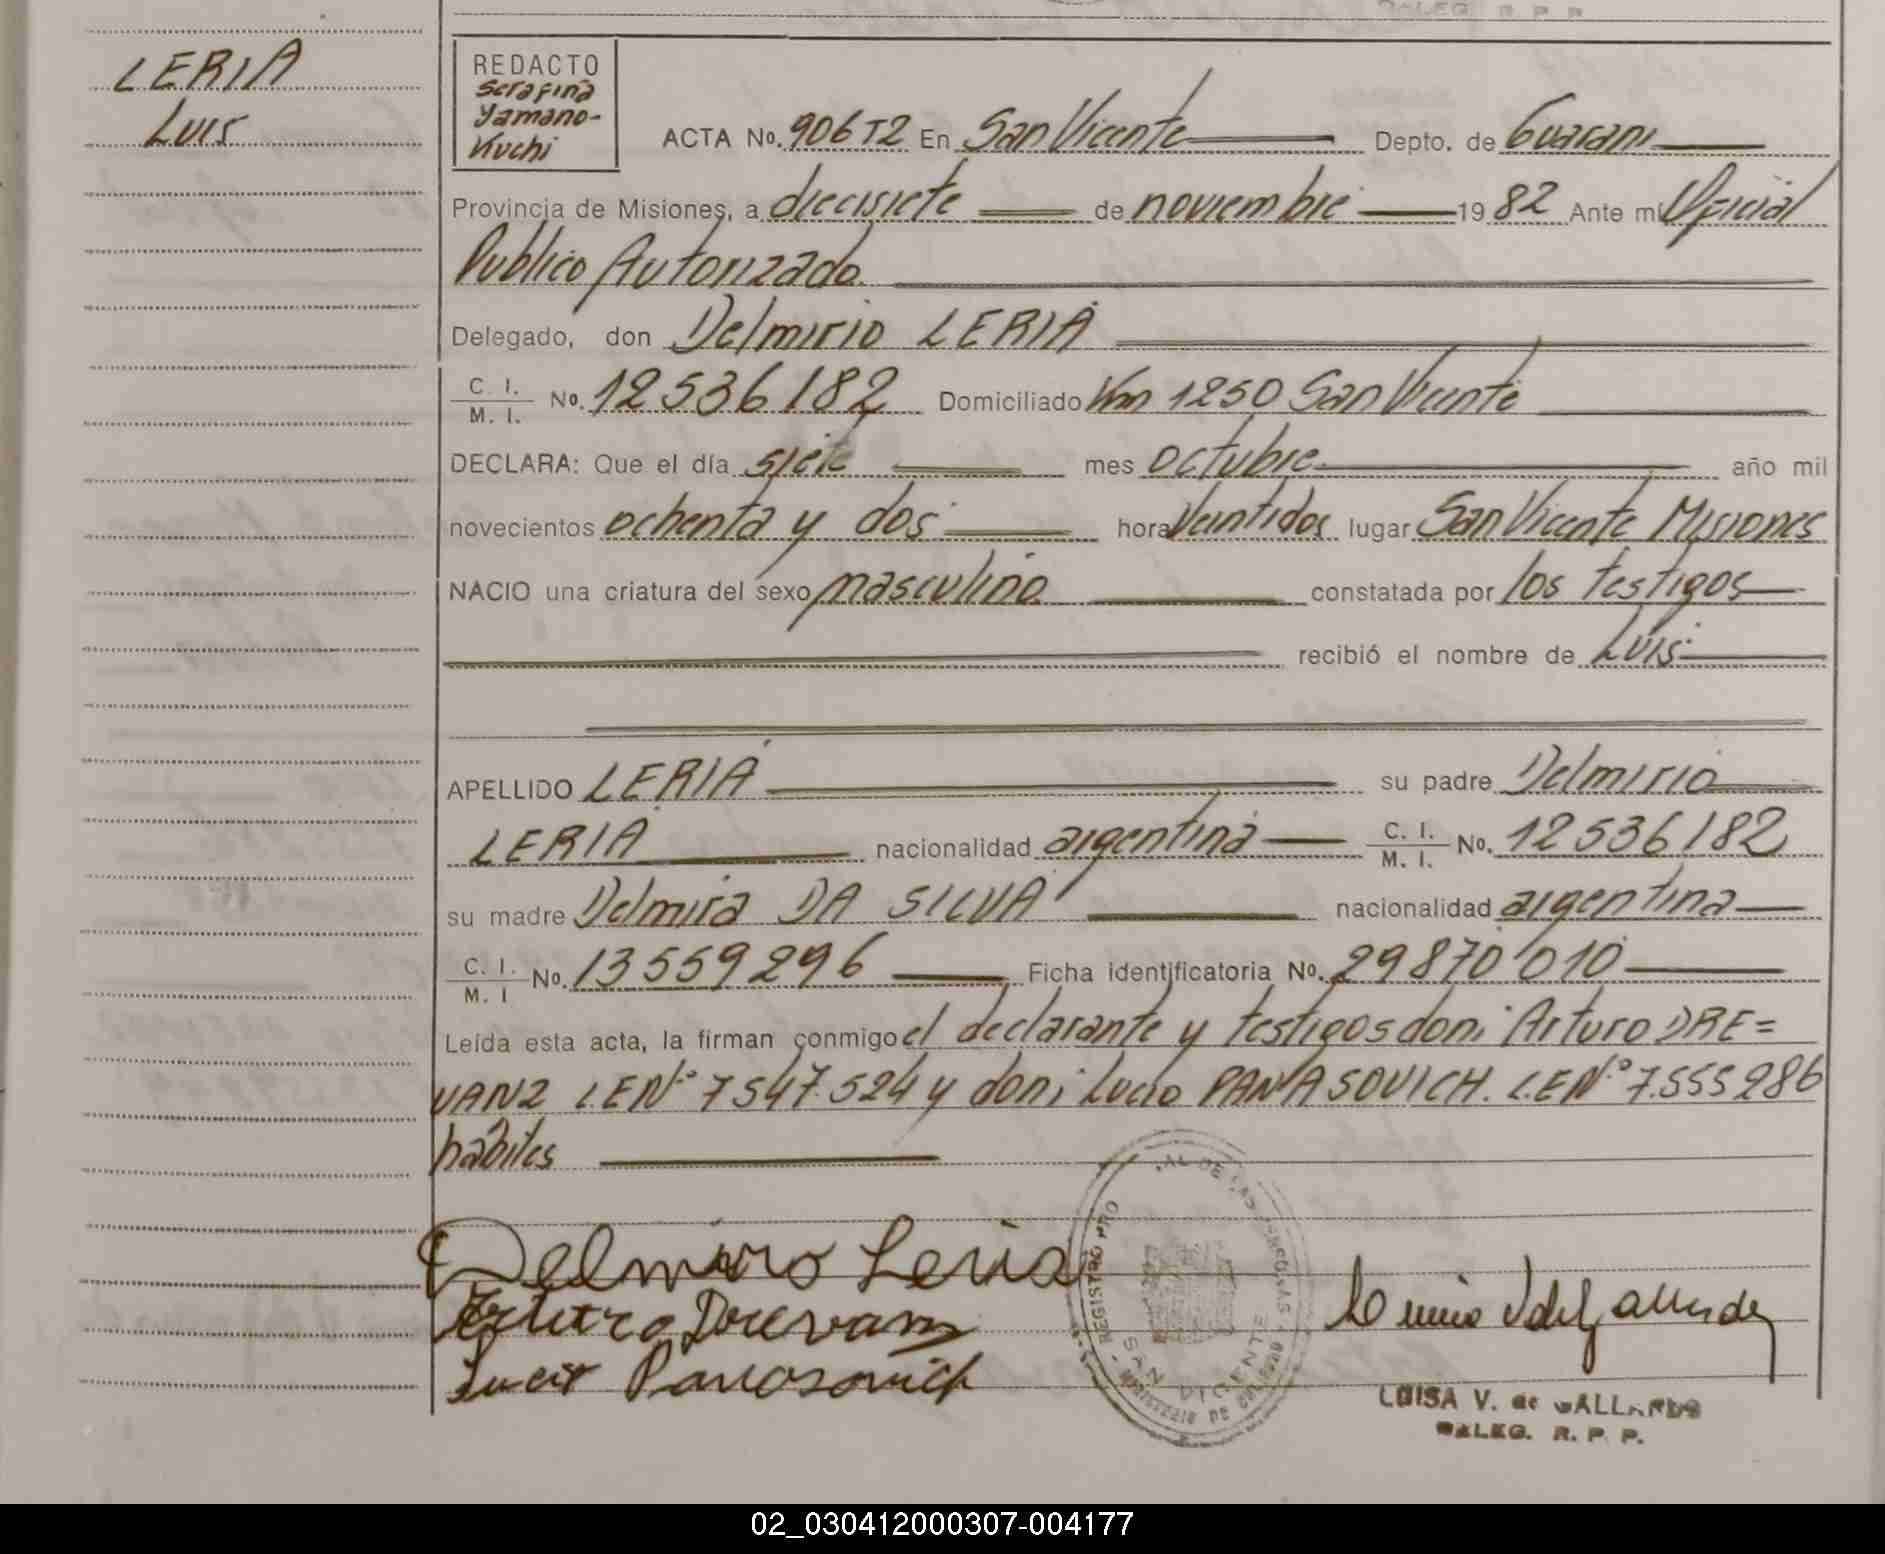 LERIA
Luis
REDACTO
Serafina
Yamano-
Kuchi
ACTA No. 906 T2 En San Vicente Depto. de Guarani
Provincia de Misiones, a diecisiete de noviembre 1982 Ante mi Oficial
Publico Autorizado.
Delegado, don Delmirio LERIA
C. I. / M. I. No. 12536182 Domiciliado Km 1250 San Vicente
DECLARA: Que el día siete mes octubre año mil
novecientos ochenta y dos hora Veintidos lugar San Vicente Misiones
NACIO una criatura del sexo masculino constatada por los testigos
recibió el nombre de Luis
APELLIDO LERIA su padre Delmirio
LERIA nacionalidad argentina C. I. / M. I. No. 12536182
su madre Delmira DA SILVA nacionalidad argentina
C. I. / M. I No. 13559296 Ficha identificatoria No. 29870010
Leída esta acta, la firman conmigo el declarante y testigos don: Arturo DRE=
VANZ LEN° 7547.524 y don: Lucio PANASOVICH. L.E.N° 7.555286
hábiles
Delmiro Leria
Arturo Drevanz
Lucio Panasovich
REGISTRO PRO AL DE LAS PERSONAS
SAN VICENTE
LUISA V. de GALLARDO
DELEG. R. P. P.
02_030412000307-004177